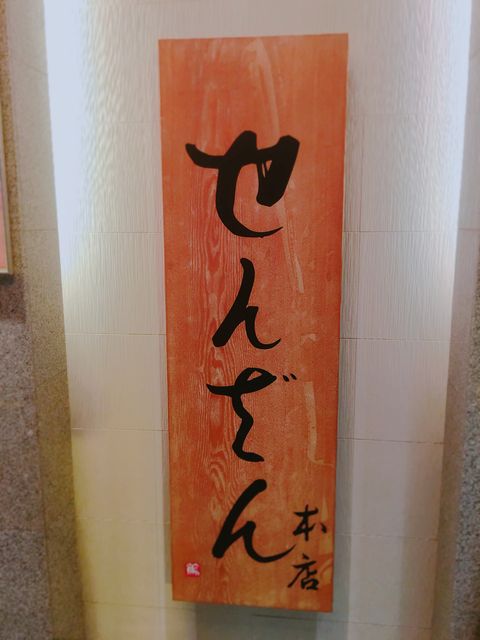 せんだん
本店